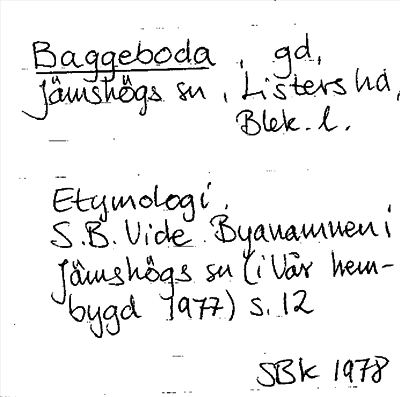 Baggeboda, gd,
Jämshögs sn, Listers hd,
Blek. l.
Etymologi.
S.B. Vide Byanamnen i
Jämshögs sn (i Vår hem-
bygd 1977) s. 12
SBk 1978